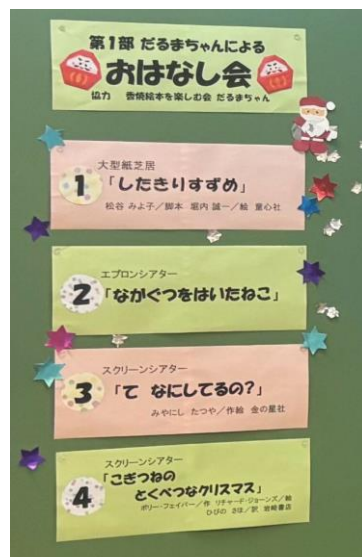 第1部 だるまちゃんによる
おはなし会
協力 香焼絵本を楽しむ会 だるまちゃん
大型紙芝居
1 「したきりすずめ」
松谷 みよ子／脚本 堀内 誠一／絵 童心社
エプロンシアター
2 「ながぐつをはいたねこ」
スクリーンシアター
3 「て なにしてるの？」
みやにし たつや／作絵 金の星社
スクリーンシアター
4 「こぎつねの
とくべつなクリスマス」
ポリー・フェイバー／作 リチャード・ジョーンズ／絵
ひびの さほ／訳 岩崎書店